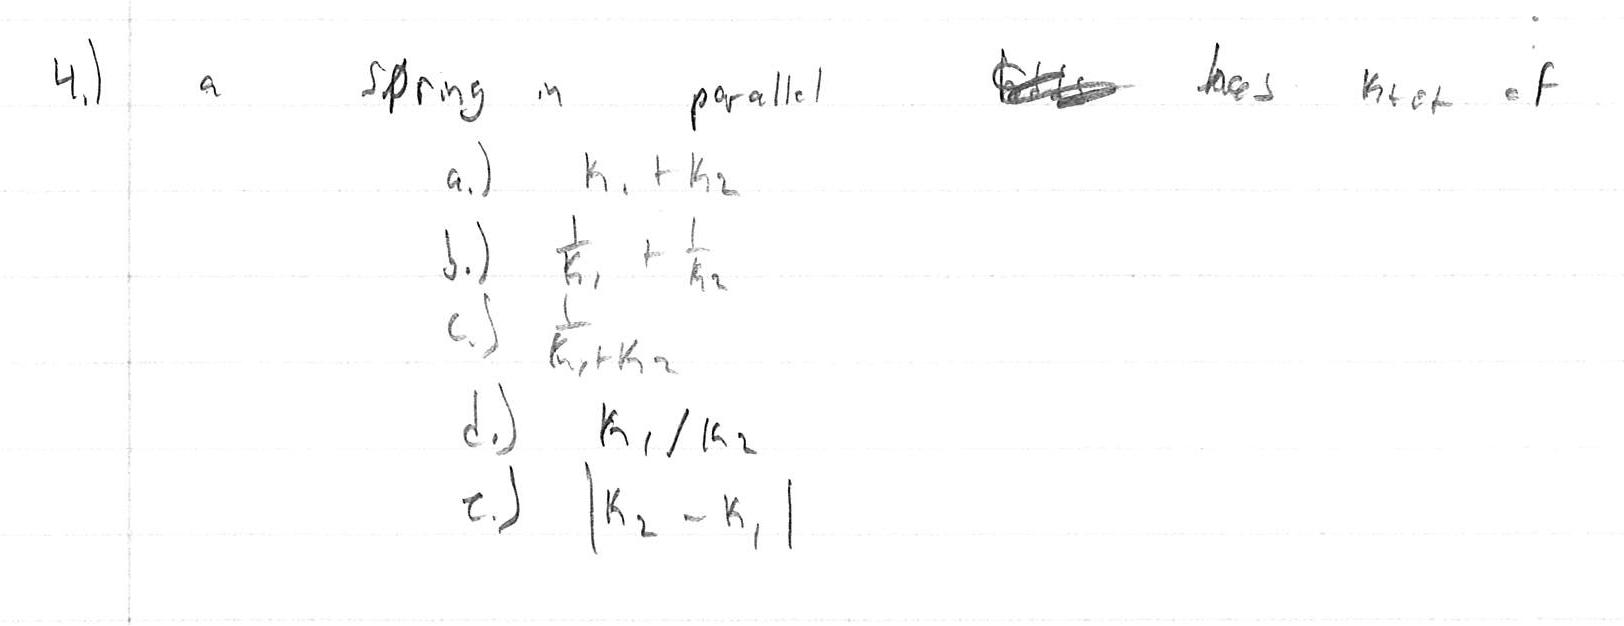 4.) a spring in parallel has ktot of
a.) k₁ + k₂
b.) 1/k₁ + 1/k₂
c.) 1/(k₁+k₂)
d.) k₁/k₂
e.) |k₂ - k₁|